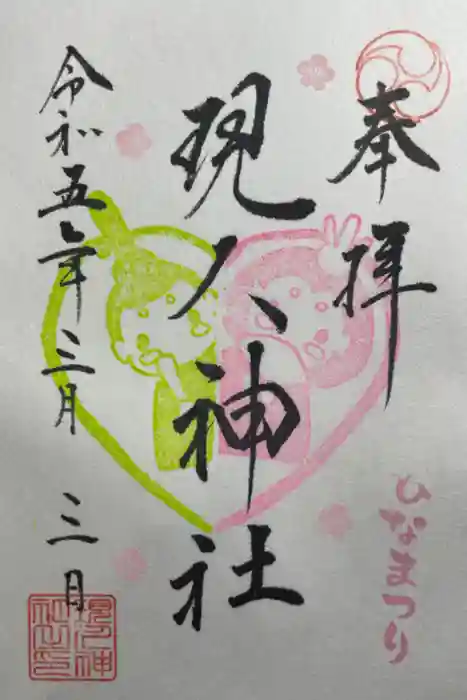 奉拝
ひなまつり
現人神社
令和五年三月三日